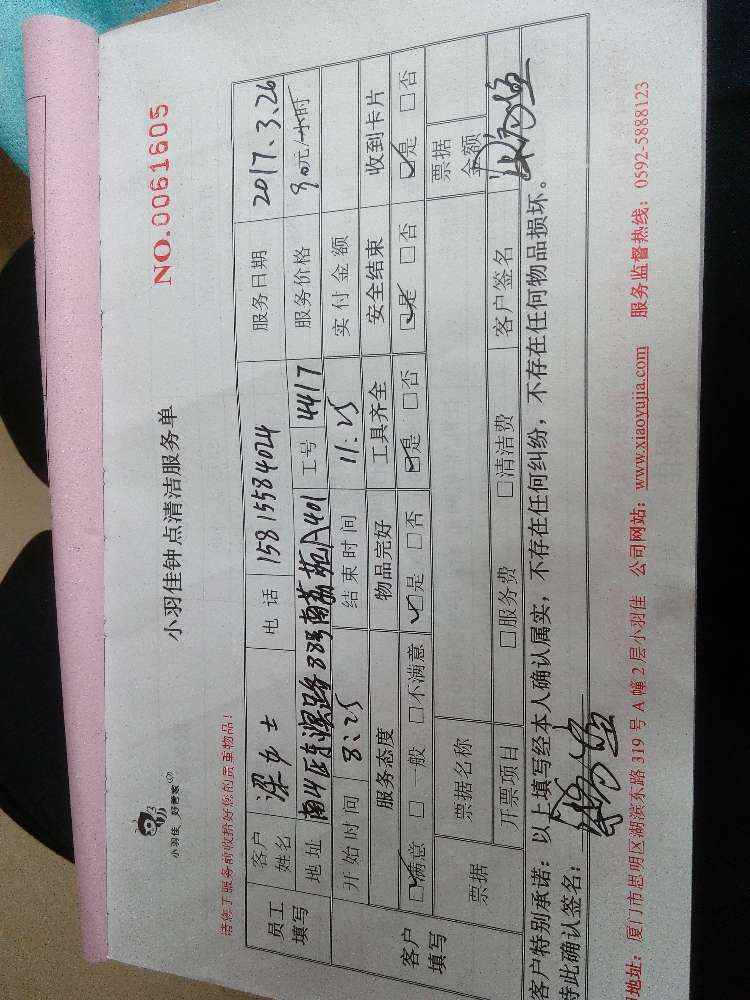 小羽佳_好管家
小羽佳钟点清洁服务单
NO.0061605
请您于服务前收拾好您的贵重物品!
员工填写 客户姓名 梁女士 电话 15815584024 服务日期 2017.3.26
地址 南山区东滨路88号南荔苑A401 工号 4417 服务价格 90元/小时
客户填写 开始时间 8:25 结束时间 11:25 实付金额
服务态度 物品完好 工具齐全 安全结束 收到卡片
☑满意 □一般 □不满意 ☑是 □否 ☑是 □否 ☑是 □否 ☑是 □否
票据 票据名称 票据金额
开票项目 □服务费 □清洁费 客户签名
客户特别承诺:以上填写经本人确认属实,不存在任何纠纷,不存在任何物品损坏。
特此确认签名:
地址:厦门市思明区湖滨东路319号A幢2层小羽佳 公司网站:www.xiaoyujia.com 服务监督热线:0592-5888123